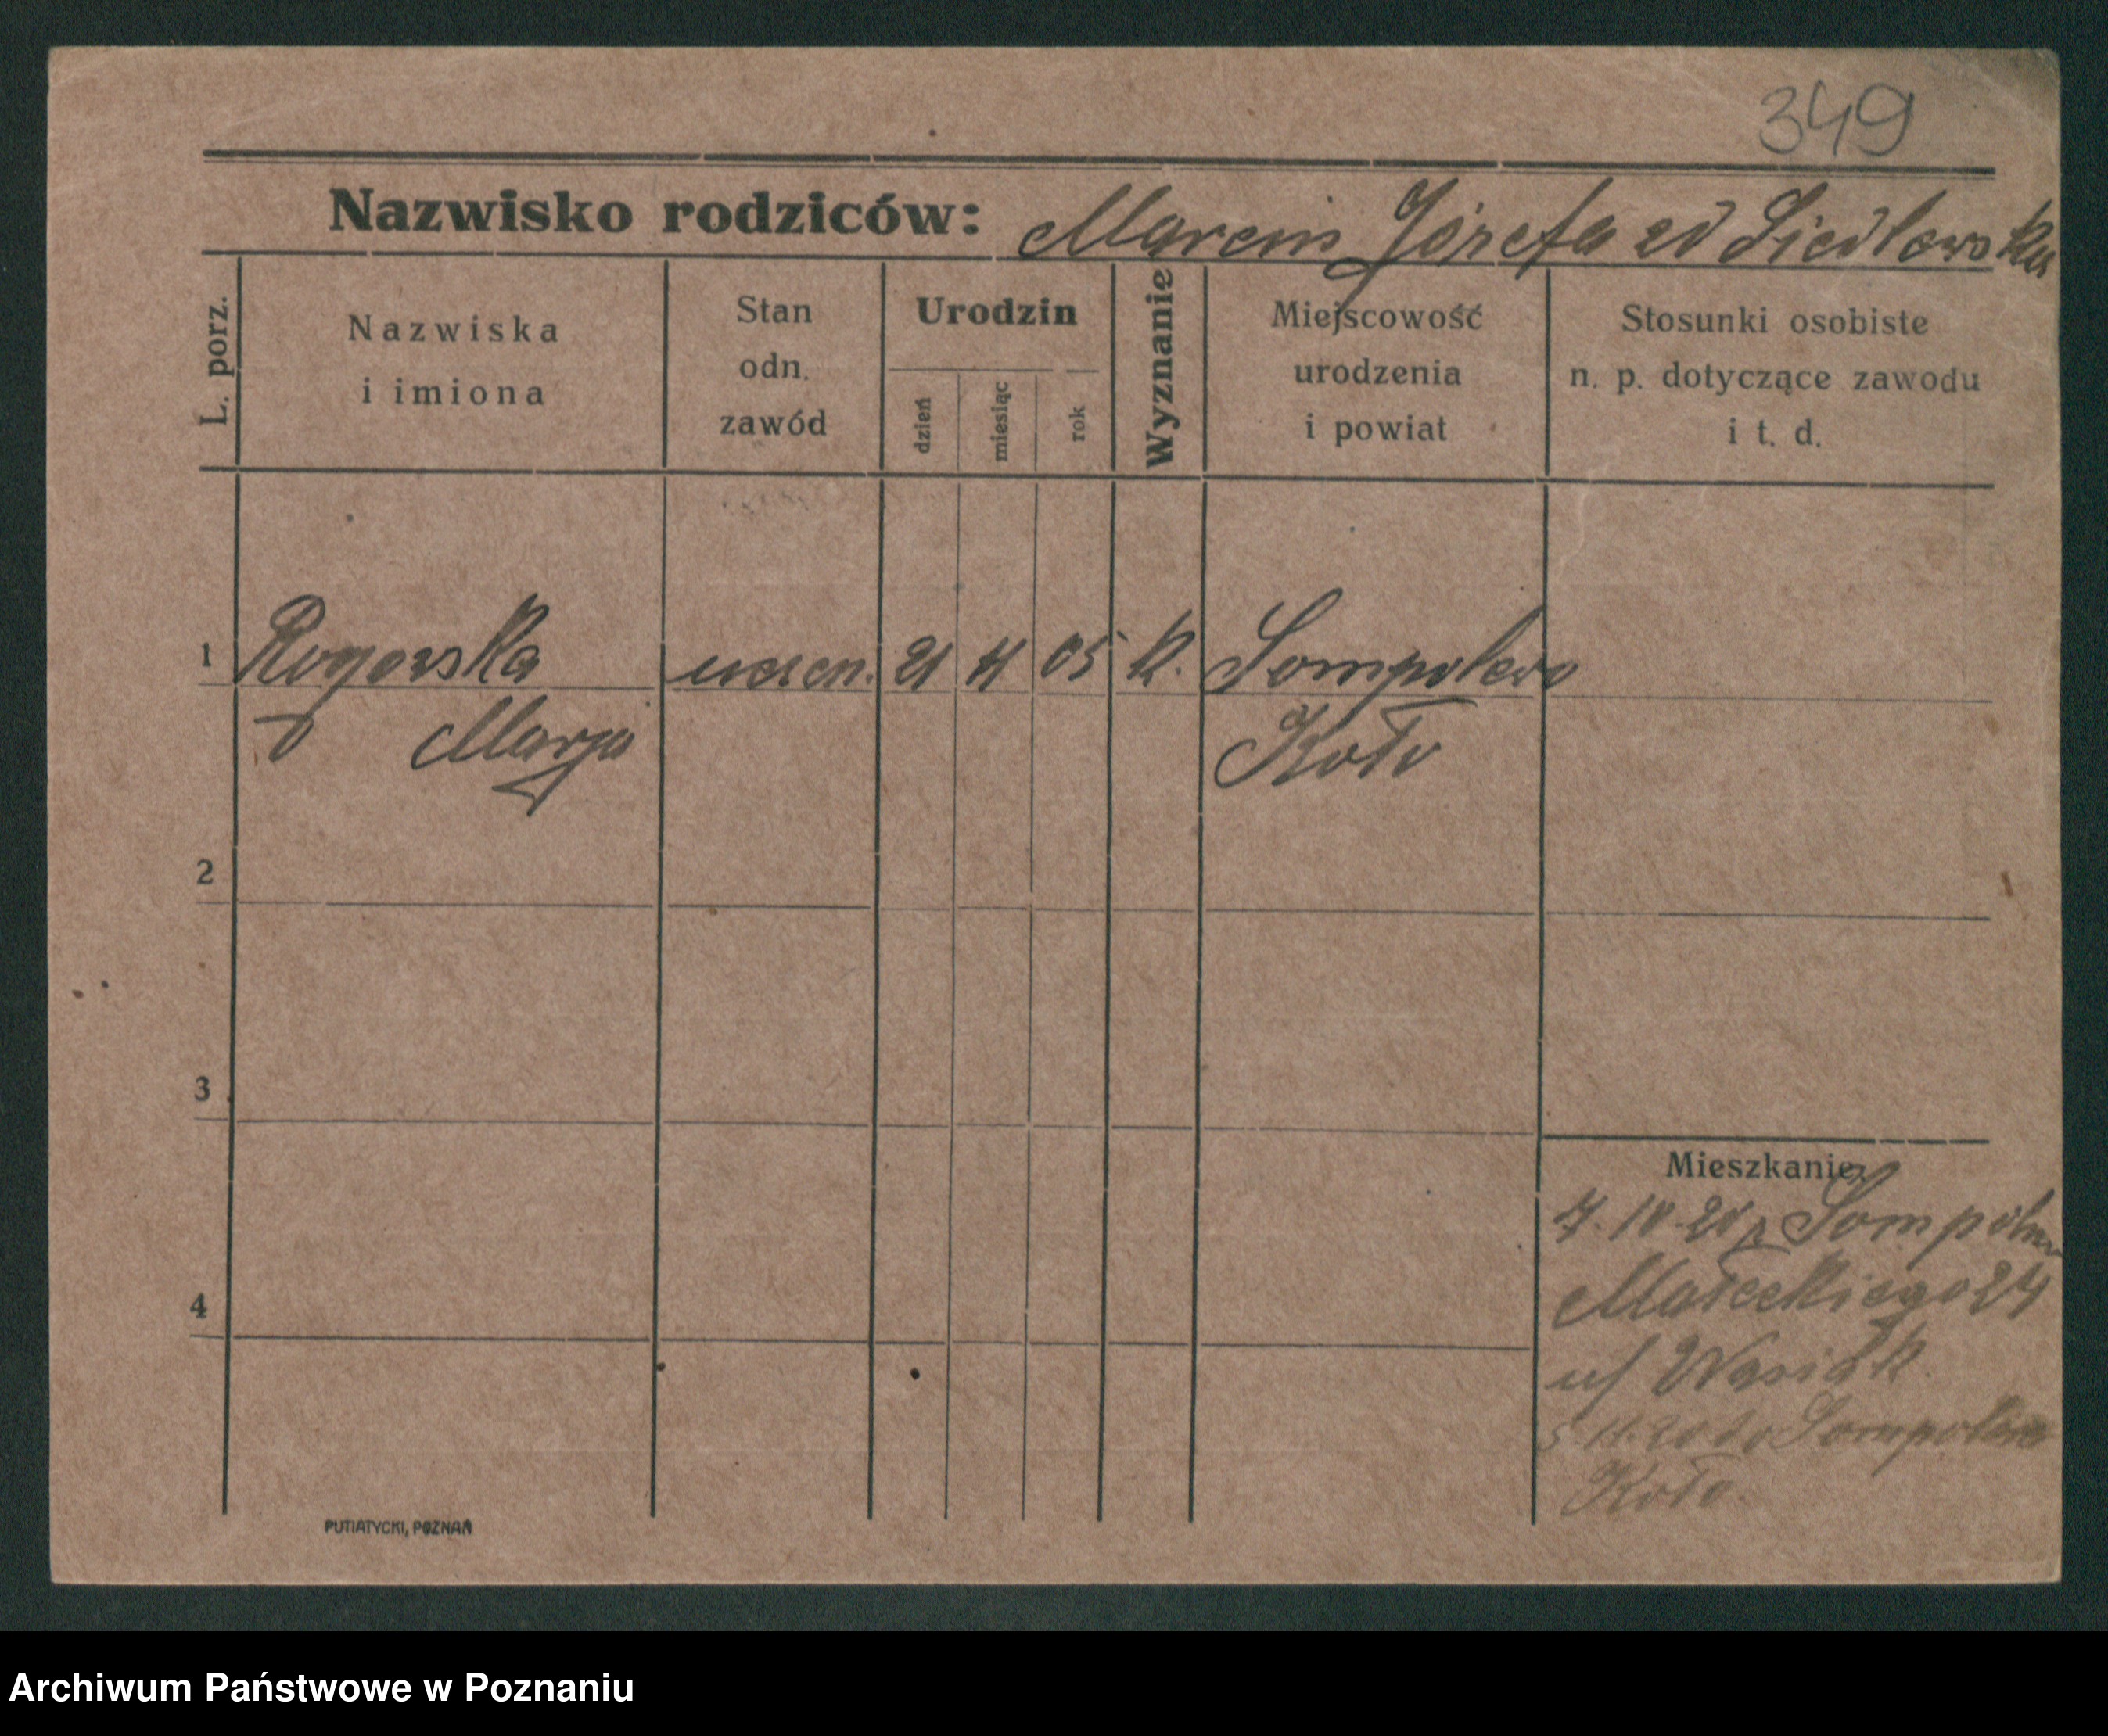 349
Nazwisko rodziców: Marcin Józefa zd Siedlowska
L. porz.
Nazwiska
i imiona
Stan
odn.
zawód
Urodzin
dzień
miesiąc
rok
Wyznanie
Miejscowość
urodzenia
i powiat
Stosunki osobiste
n. p. dotyczące zawodu
i t. d.
1 Rogowska uczen. 21 4 05 k. Sompolno
Marja Koło
2
3
4
Mieszkanie
Sompolno
Małeckiego 24
Wasiak
do Sompolna
Koło
PUTIATYCKI, POZNAŃ
Archiwum Państwowe w Poznaniu